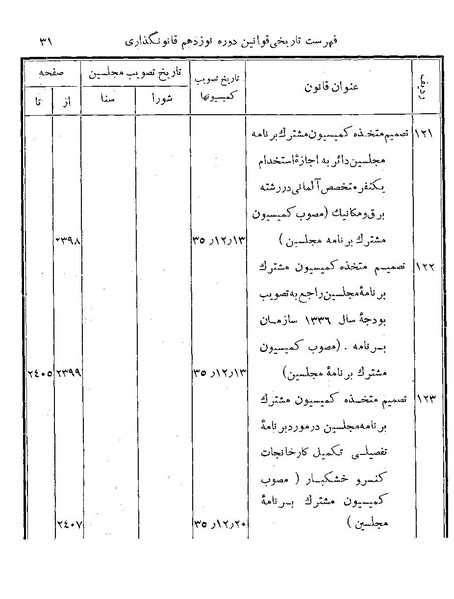 فهرست تاریخی قوانین دوره نوزدهم قانونگذاری ۳۱
ردیف
عنوان قانون
تاریخ تصویب کمیسیونها
تاریخ تصویب مجلسین
شورا
سنا
صفحه
از
تا
۱۲۱ تصمیم متخذه کمیسیون مشترك برنامه
مجلسین دائر به اجازهٔ استخدام
یکنفر متخصص آلمانی در رشته
برق و مکانیك (مصوب کمیسیون
مشترك برنامه مجلسین) ۳۵٫۱۲٫۱۳ ۲۳۹۸
۱۲۲ تصمیم متخذه کمیسیون مشترك
برنامهٔ مجلسین راجع به تصویب
بودجهٔ سال ۱۳۳۶ سازمان
برنامه . (مصوب کمیسیون
مشترك برنامهٔ مجلسین) ۳۵٫۱۲٫۱۳ ۲۳۹۹ ۲٤۰۵
۱۲۳ تصمیم متخذه کمیسیون مشترك
برنامه مجلسین در مورد برنامهٔ
تفصیلی تکمیل کارخانجات
کنسرو خشکبار ( مصوب
کمیسیون مشترك برنامهٔ
مجلسین ) ۳۵٫۱۲٫۲۰ ۲٤۰۷